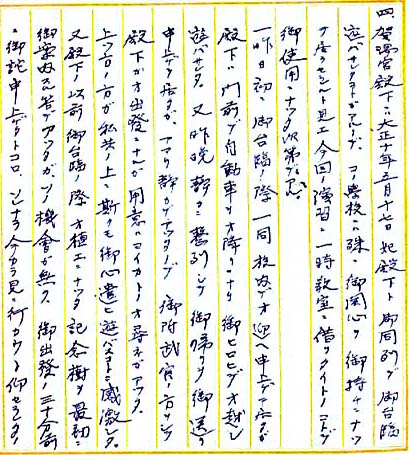 四、賀陽宮殿下ハ大正十年三月十七日妃殿下ト御同列デ御台臨
遊バセラレタコトガアルノデ コノ学校ニハ殊ニ御関心ヲ御持チニナッ
テ居ラセラレルト見エ今回ノ演習ニ一時教室ヲ借リタイトノコトデ
御使用ニナッタ次第デス。
一昨日初ノ御台臨ノ際一同校門デオ迎ヘ申上ゲテ居タガ
殿下ハ門前デ自動車ヲオ降リニナリ御ヒロヒデオ越シ
遊バサレタ。又昨晩静ニ整列シテ御帰リヲ御送リ
申上ゲテ居タガ、アマリ静カデアッタノデ 御附武官ノ方ヲシテ
殿下ガオ出発ニナルガ用意ハヨイカトノオ尋ネガアッタ。
上ツ方ノ方ガ私共ノ上ニ斯クモ御心遣ヒ遊バスコトニ感激シタ。
又殿下ノ以前御台臨ノ際オ植エニナッタ記念樹ヲ最初ニ
御覧ヌル筈デアッタガソノ機会ガ無ク 御出発ノ三十分前
ニ御詫申上ゲタトコロ、ソンナラ今カラ見ニ行カウト仰セラレタ